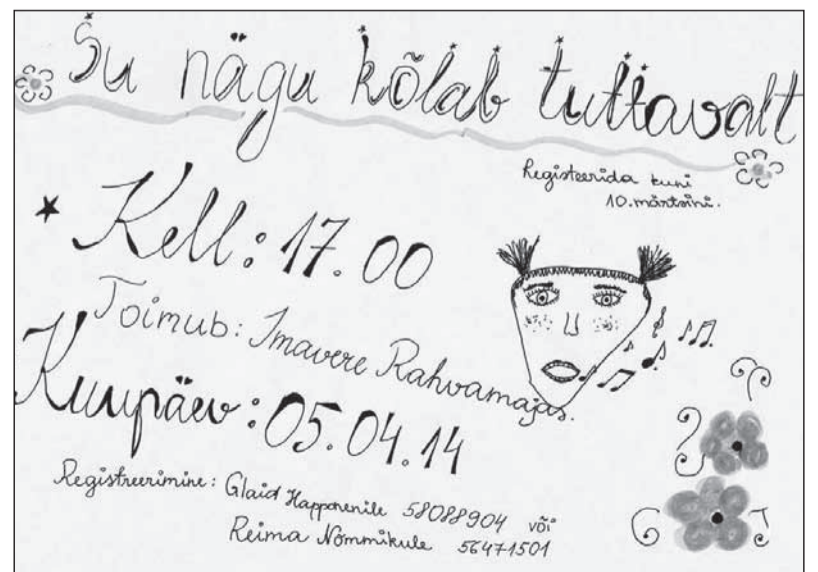 Su nägu kõlab tuttavalt
Registeerida kuni
10. märtsini.
Kell: 17.00
Toimub: Imavere Rahvamajas.
Kuupäev: 05.04.14
Registreerimine: Glaid Happonenile 58088904 või
Reima Nõmmikule 56471501